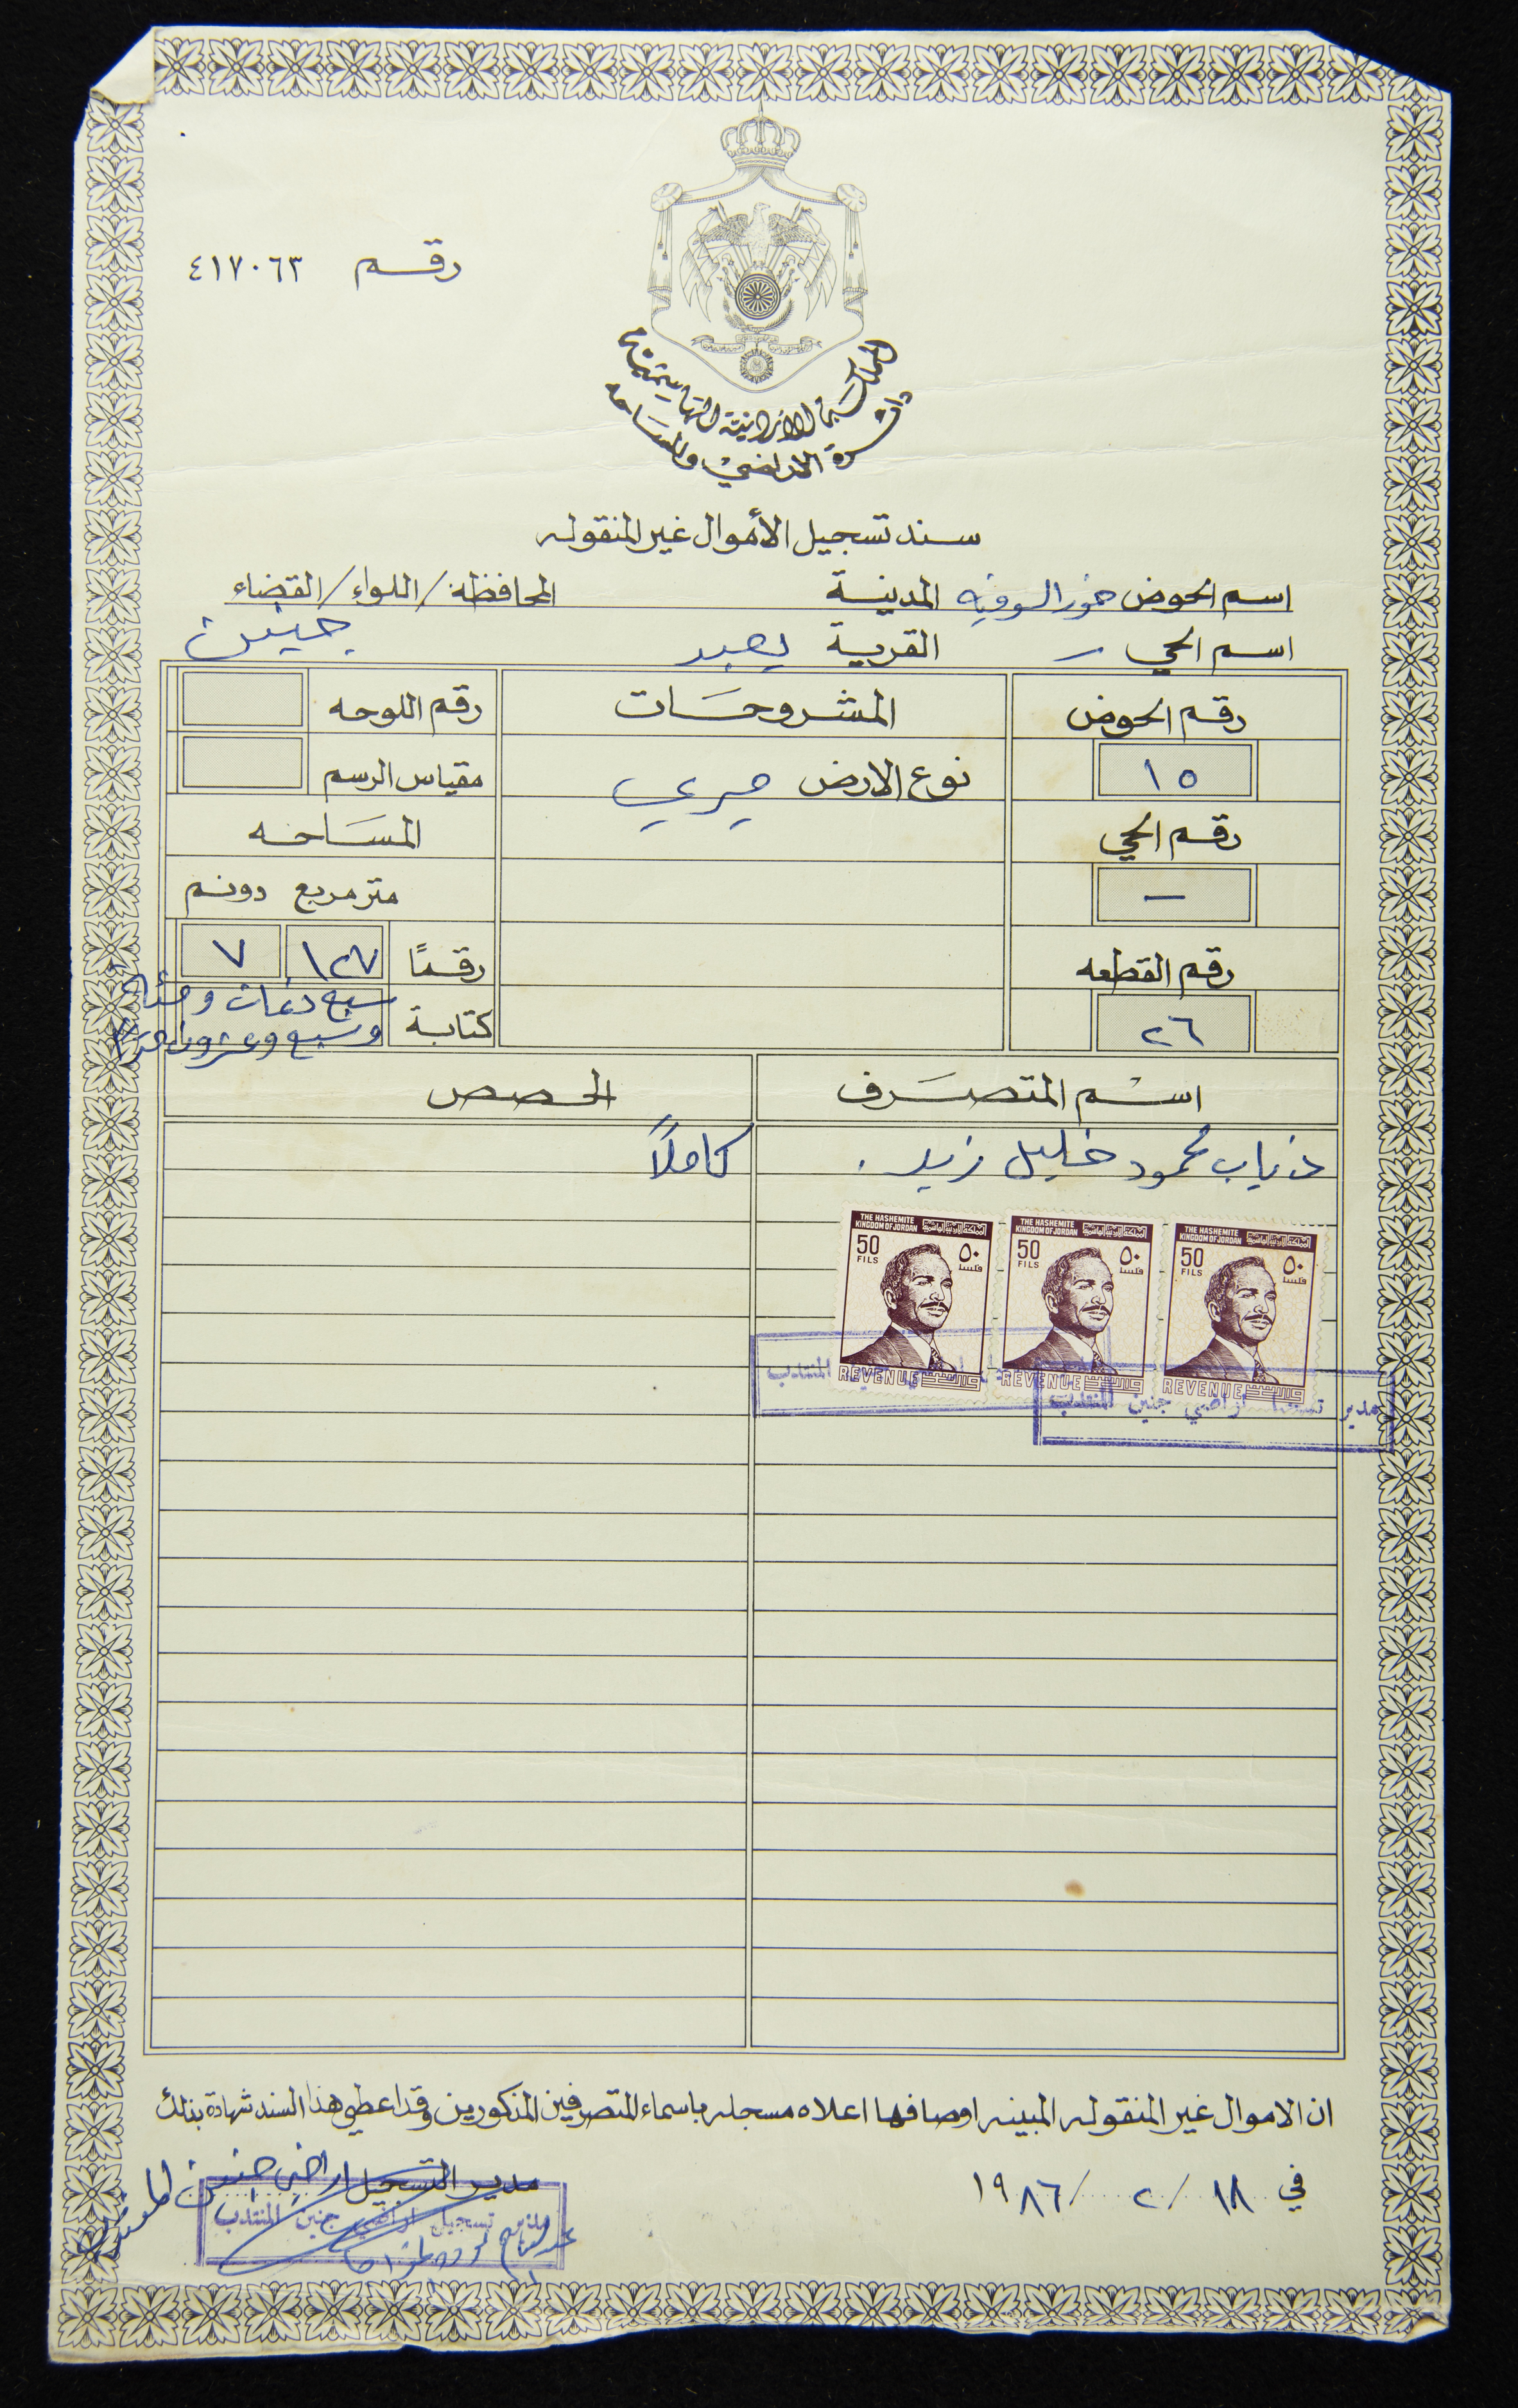 رقم ٤١٧٠٦٣
المملكة الأردنية الهاشمية
دائرة الاراضي والمساحه
سند تسجيل الأموال غير المنقوله
اسم الحوض خور المدينة المحافظة/اللواء/القضاء
اسم الحي — القرية يعبد جنين
رقم الحوض المشروحات رقم اللوحه
١٥ نوع الارض ميري مقياس الرسم
رقم الحي المساحه
— متر مربع دونم
رقم القطعه رقمًا ١٢٧ ٧
٢٦ كتابة سبع دنمات ومئة
وسبع وعشرون مترًا
اسم المتصرف الحصص
ذياب محمود خليل زيد . كاملاً
THE HASHEMITE KINGDOM OF JORDAN المملكة الأردنية الهاشمية
50 FILS ٥٠ فلسا
REVENUE واردات
THE HASHEMITE KINGDOM OF JORDAN المملكة الأردنية الهاشمية
50 FILS ٥٠ فلسا
REVENUE واردات
THE HASHEMITE KINGDOM OF JORDAN المملكة الأردنية الهاشمية
50 FILS ٥٠ فلسا
REVENUE واردات
المنتدب
مدير تسجيل اراضي جنين المنتدب
ان الاموال غير المنقوله المبينه اوصافها اعلاه مسجله باسماء المتصرفين المذكورين وقد اعطي هذا السند شهادة بذلك
في ١٨ / ٢ / ١٩٨٦ مدير التسجيل اراضي جنين المنتدب
مدير تسجيل اراضي جنين المنتدب